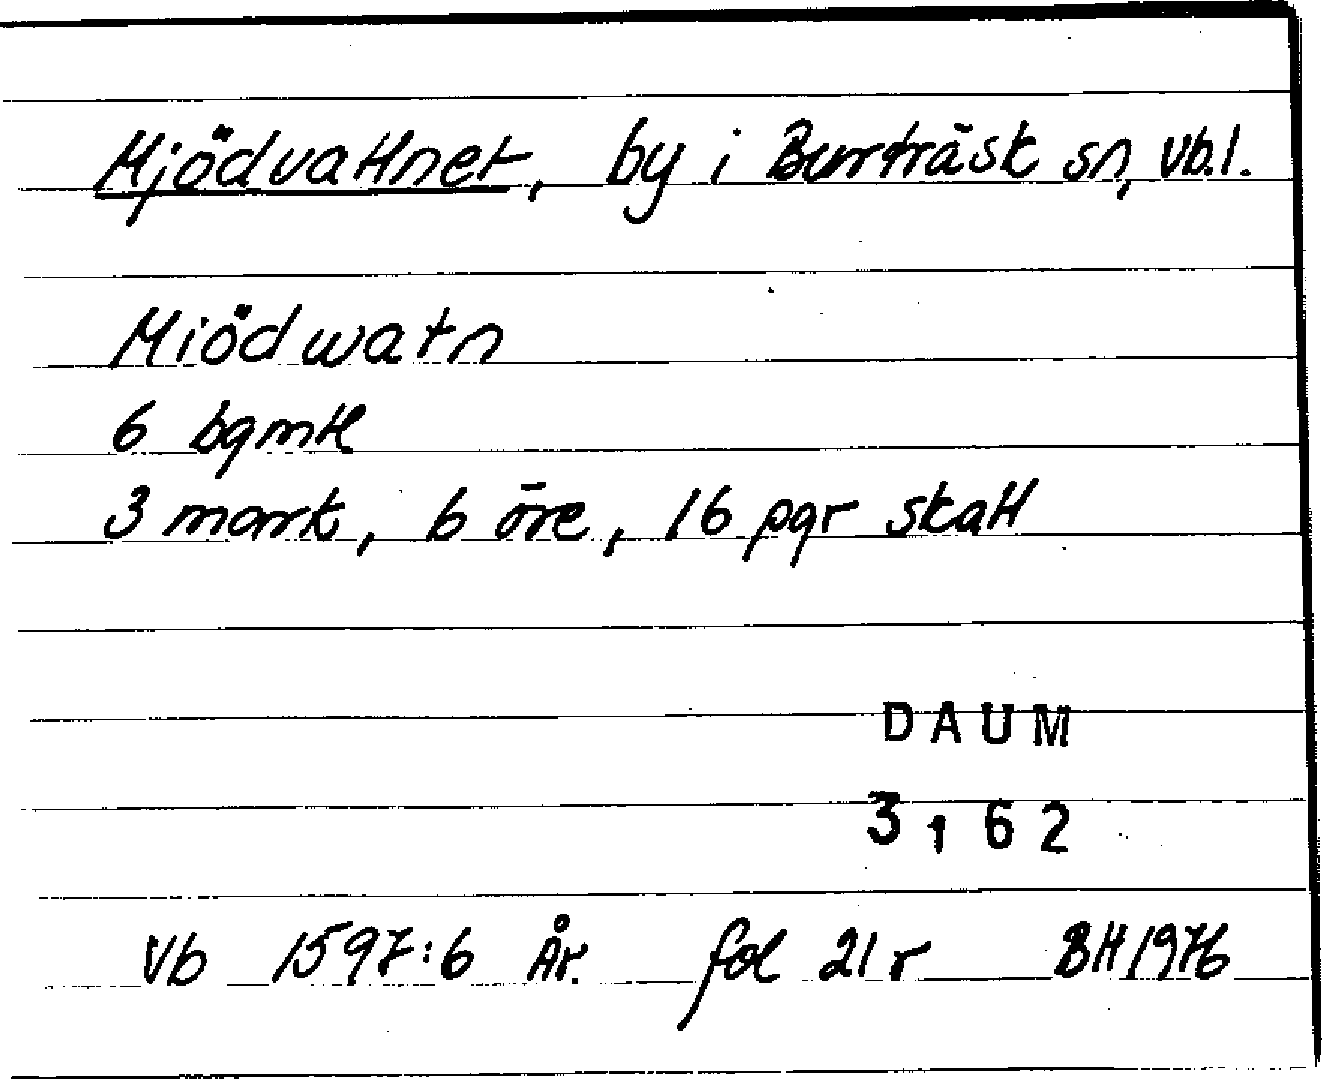 Mjödvattnet, by i Burträsk sn, Vb.l.
Miödwatn
6 bgmtl
3 mark, 6 öre, 16 pgr skatt
DAUM
3162
Vb 1597:6 År. fol 21 r BH 1976